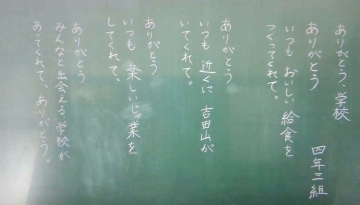 ありがとう、学校
四年三組
ありがとう
いつも おいしい給食を
つくってくれて。
ありがとう
いつも 近くに 吉田山が
いてくれて。
ありがとう
いつも 楽しいじゅ業を
してくれて。
ありがとう
みんなと出会える 学校が
あってくれて、ありがとう。